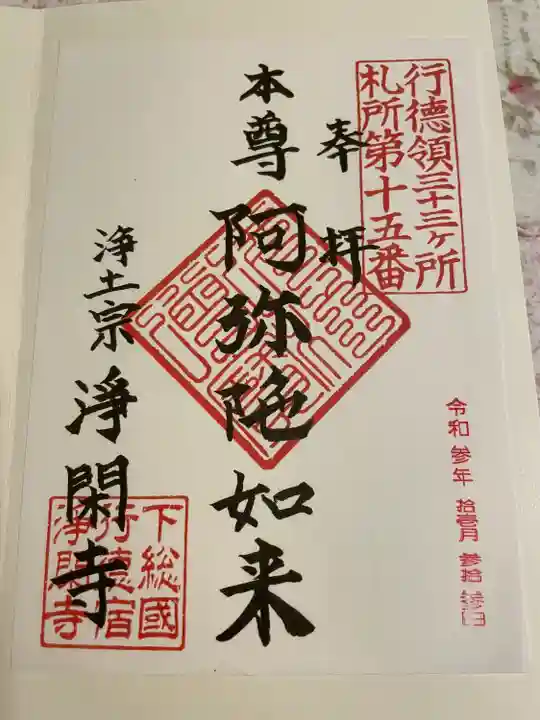 行德領三十三ヶ所
札所第十五番
奉拝
本尊 阿弥陀如来
浄土宗 浄閑寺
令和 参年 拾壱月
下総國
行德宿
浄閑寺